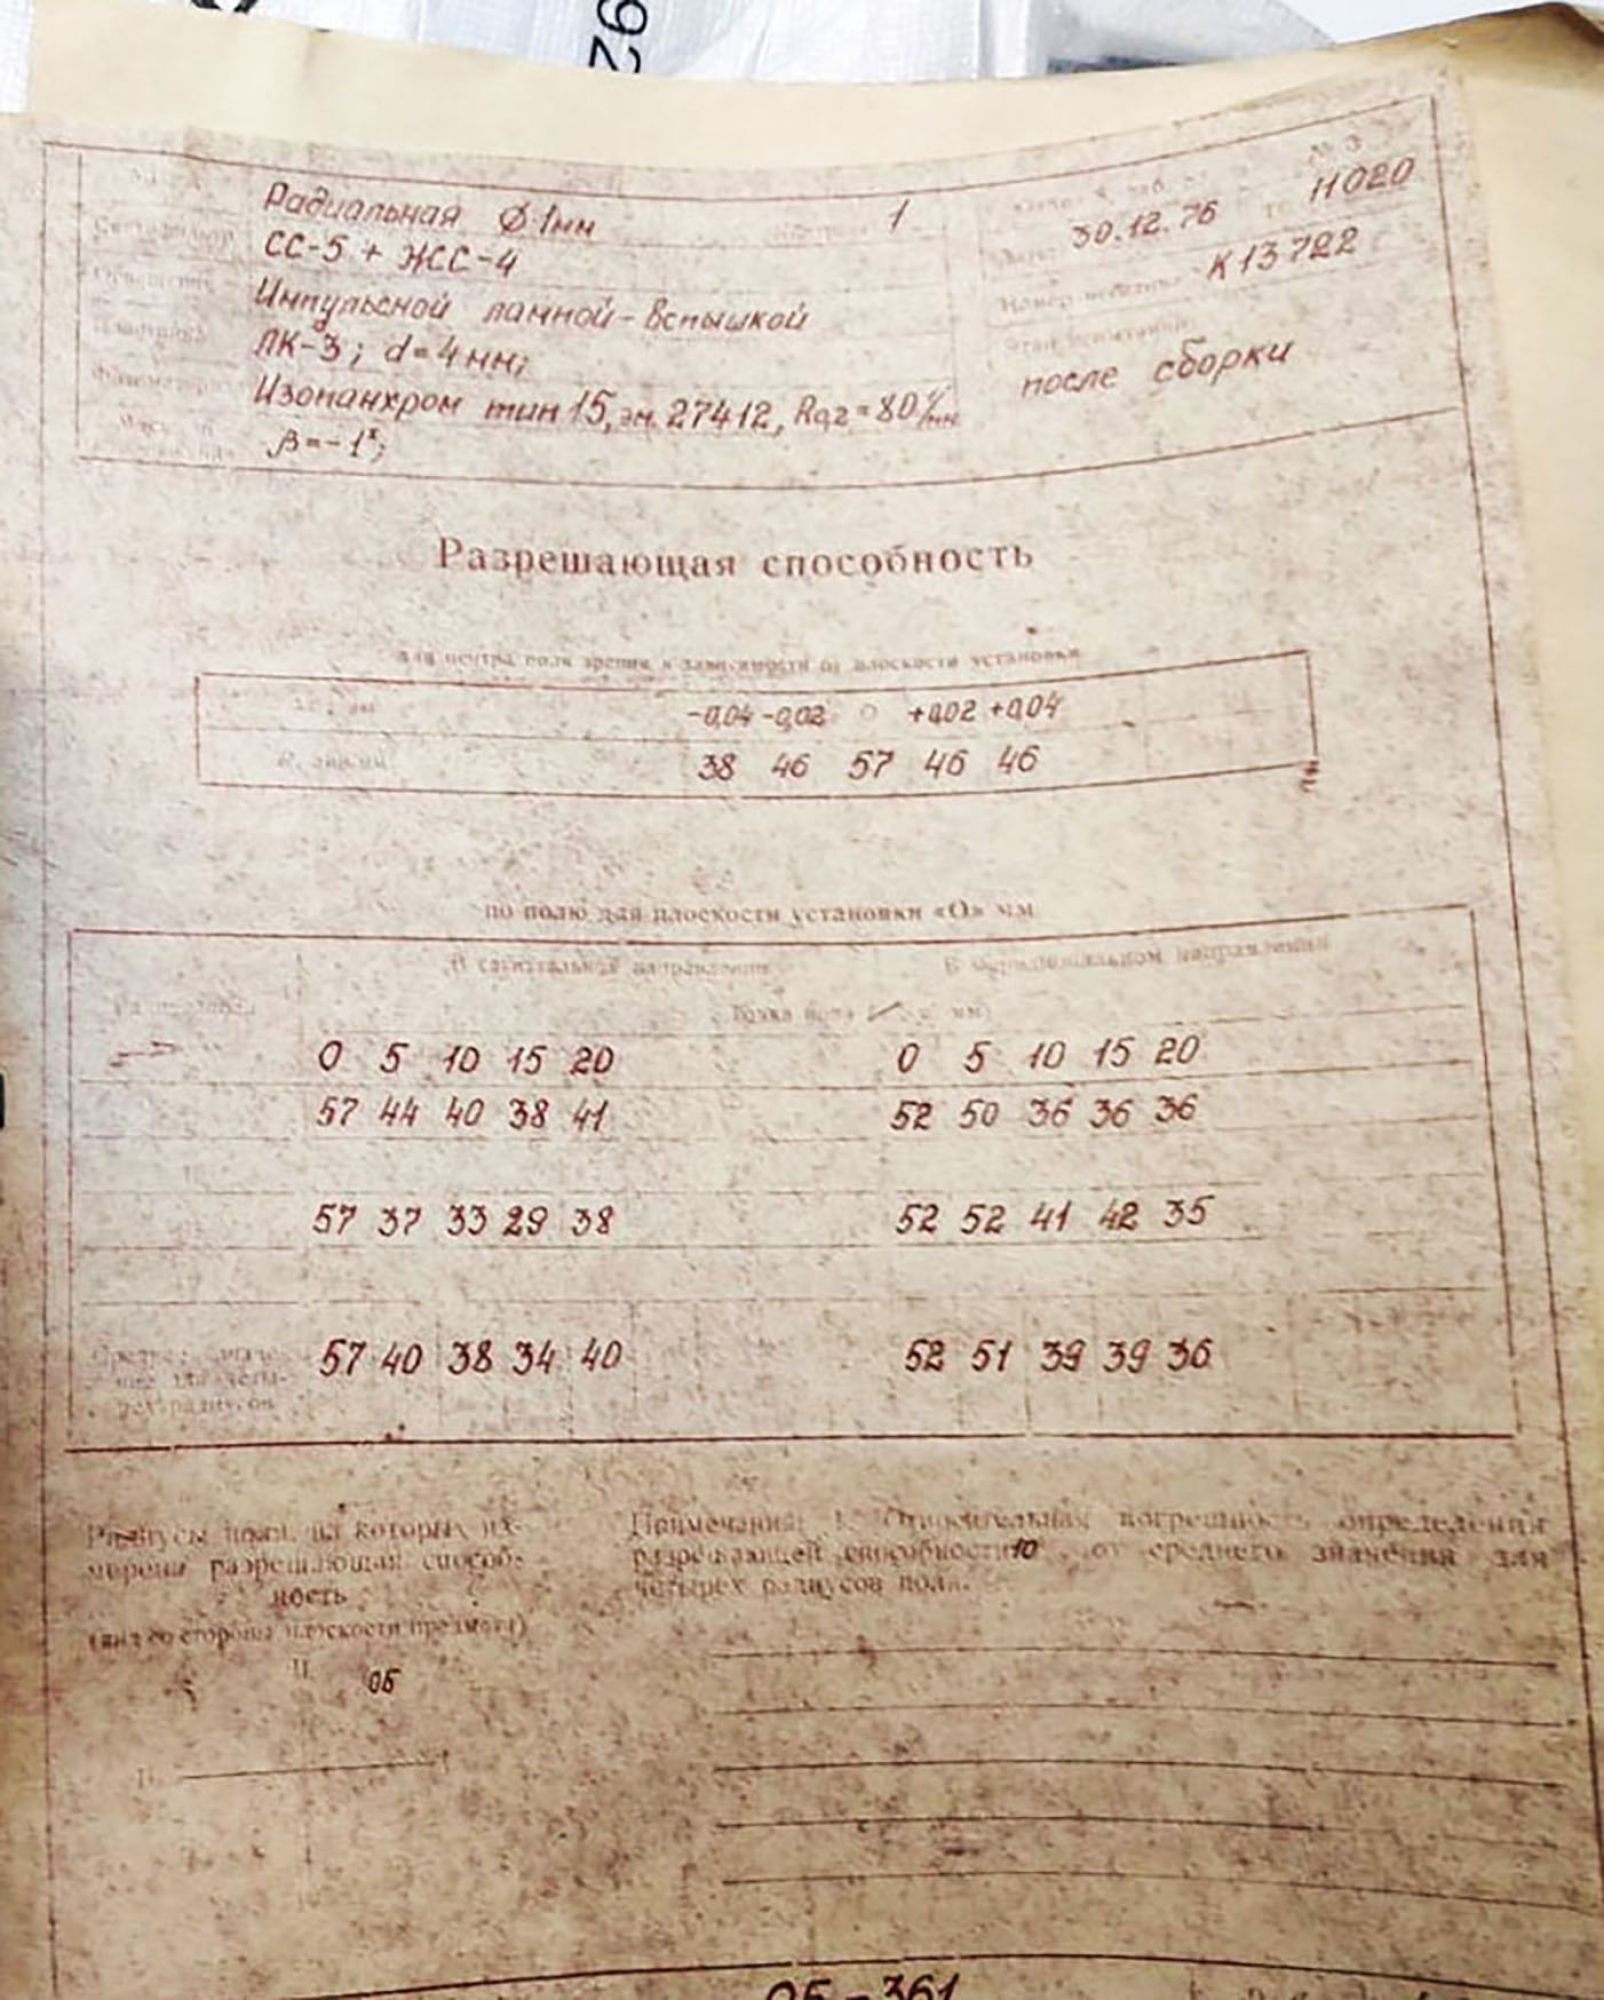 92
Радиальная Ø 1мм 1
30.12.76 Н020
СС-5 + ЖСС-4
К13722
Импульсной лампой-вспышкой
ЛК-3; d=4мм;
после сборки
Изопанхром тип 15, эм. 27412, R0,2=80 1/мм
β=-1ˣ;
Разрешающая способность
для центра поля зрения в зависимости от плоскости установки
-0,04 -0,02 0 +0,02 +0,04
38 46 57 46 46
по полю для плоскости установки «О» мм
В сагиттальном направлении В меридиональном направлении
Точка поля мм
0 5 10 15 20 0 5 10 15 20
57 44 40 38 41 52 50 36 36 36
57 37 33 29 38 52 52 41 42 35
57 40 38 34 40 52 51 39 39 36
Радиусы поля, на которых из-
мерена разрешающая способ-
ность
(вид со стороны плоскости предмета)
Примечания: 1. Относительная погрешность определения
разрешающей способности 10 от среднего значения для
четырех радиусов поля.
II 0б
ОБ-361